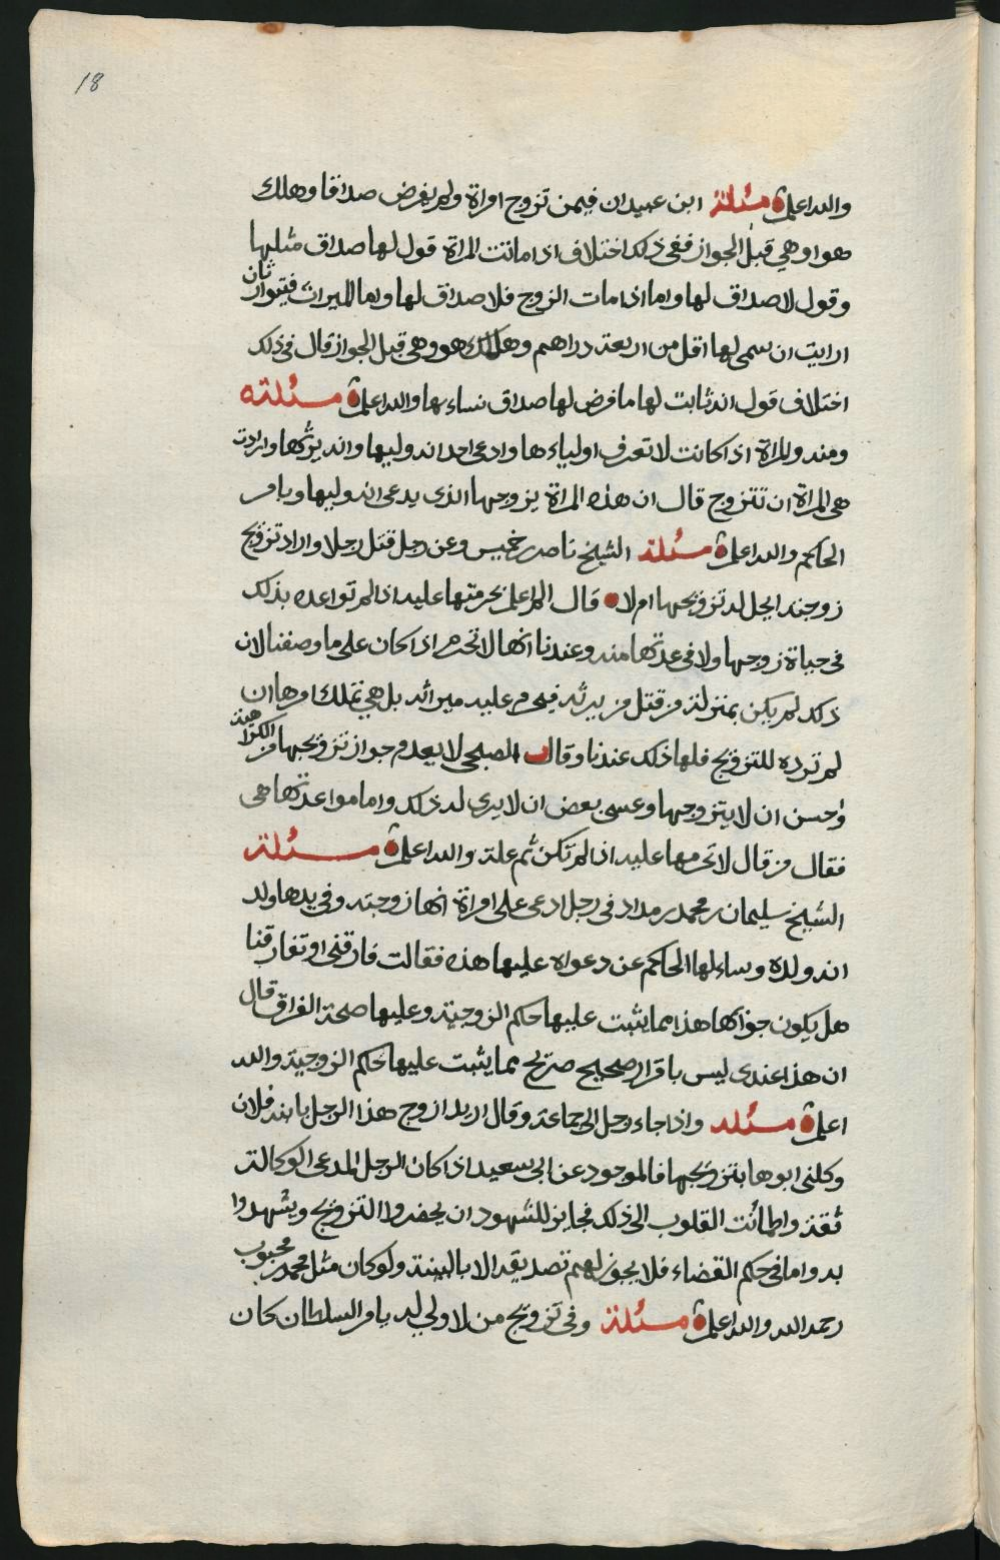 18
والله اعلم مسئلة ابن عبيدان فيمن تزوج امراة ولم يفرض صداقا وهلك
هو او هي قبل الجواز ففي ذلك اختلاف اذا ماتت المراة قول لها صداق مثلها
وقول لا صداق لها واما اذا مات الزوج فلا صداق لها واما الميراث فيتوارثان
ارايت ان سمى لها اقل من اربعة دراهم وهلك هو وهي قبل الجواز قال في ذلك
اختلاف قول انه ثابت لها ما فرض لها صداق نساءها والله اعلم مسئلته
ومنه والمراة اذا كانت لا تعرف اولياءها وادعى احد انه وليها وانه يزوجها وارادت
هي المراة ان تتزوج قال ان هذه المراة يزوجها الذي يدعي انه وليها ويامر
الحاكم والله اعلم مسئلة الشيخ ناصر بن خميس وعن رجل قتل رجلا واراد تزويج
زوجته ايحل له تزويجها ام لا قال لم اعلم بحرمتها عليه اذا لم تواعده بذلك
في حياة زوجها ولا في عدتها منه وعندنا انها لا تحرم اذا كان على ما وصفنا لان
ذلك لم يكن بمنزلة من قتل من يرثه فيحرم عليه ميراثه بل هي تملك امرها ان
لم ترده للتزويج فلها ذلك عندنا وقال الصبحي لا يعدم جواز تزويجها من الكراهية
واحسن ان لا يتزوجها وعسى بعض ان لا يرى له ذلك واما مواعدتها هي
فقال من قال لا تحرمها عليه اذا لم تكن ثم علة والله اعلم مسئلة
الشيخ سليمان بن محمد بن مداد في رجل ادعى على امراة انها زوجته وفي يدها ولد
انه ولده وساءلها الحاكم عن دعواه عليها هذه فقالت فارقني او تفارقنا
هل يكون جوابها هذا مما يثبت عليها حكم الزوجية وعليها صحة الفراق قال
ان هذا عندي ليس باقرار صحيح صريح مما يثبت عليها حكم الزوجية والله
اعلم مسئلة واذا جاء رجل الى جماعة وقال اريد ازوج هذا الرجل بابنة فلان
وكلني ابوها بتزويجها فالموجود عن ابي سعيد اذا كان الرجل المدعي الوكالة
ثقة واطمأنت القلوب الى ذلك فجايز للشهود ان يحضروا التزويج ويشهدوا
به واما في حكم القضاء فلا يجوز لهم تصديقه الا بالبينة ولو كان مثل محمد بن محبوب
رحمه الله والله اعلم مسئلة وفي تزويج من لا ولي له يامر السلطان كان